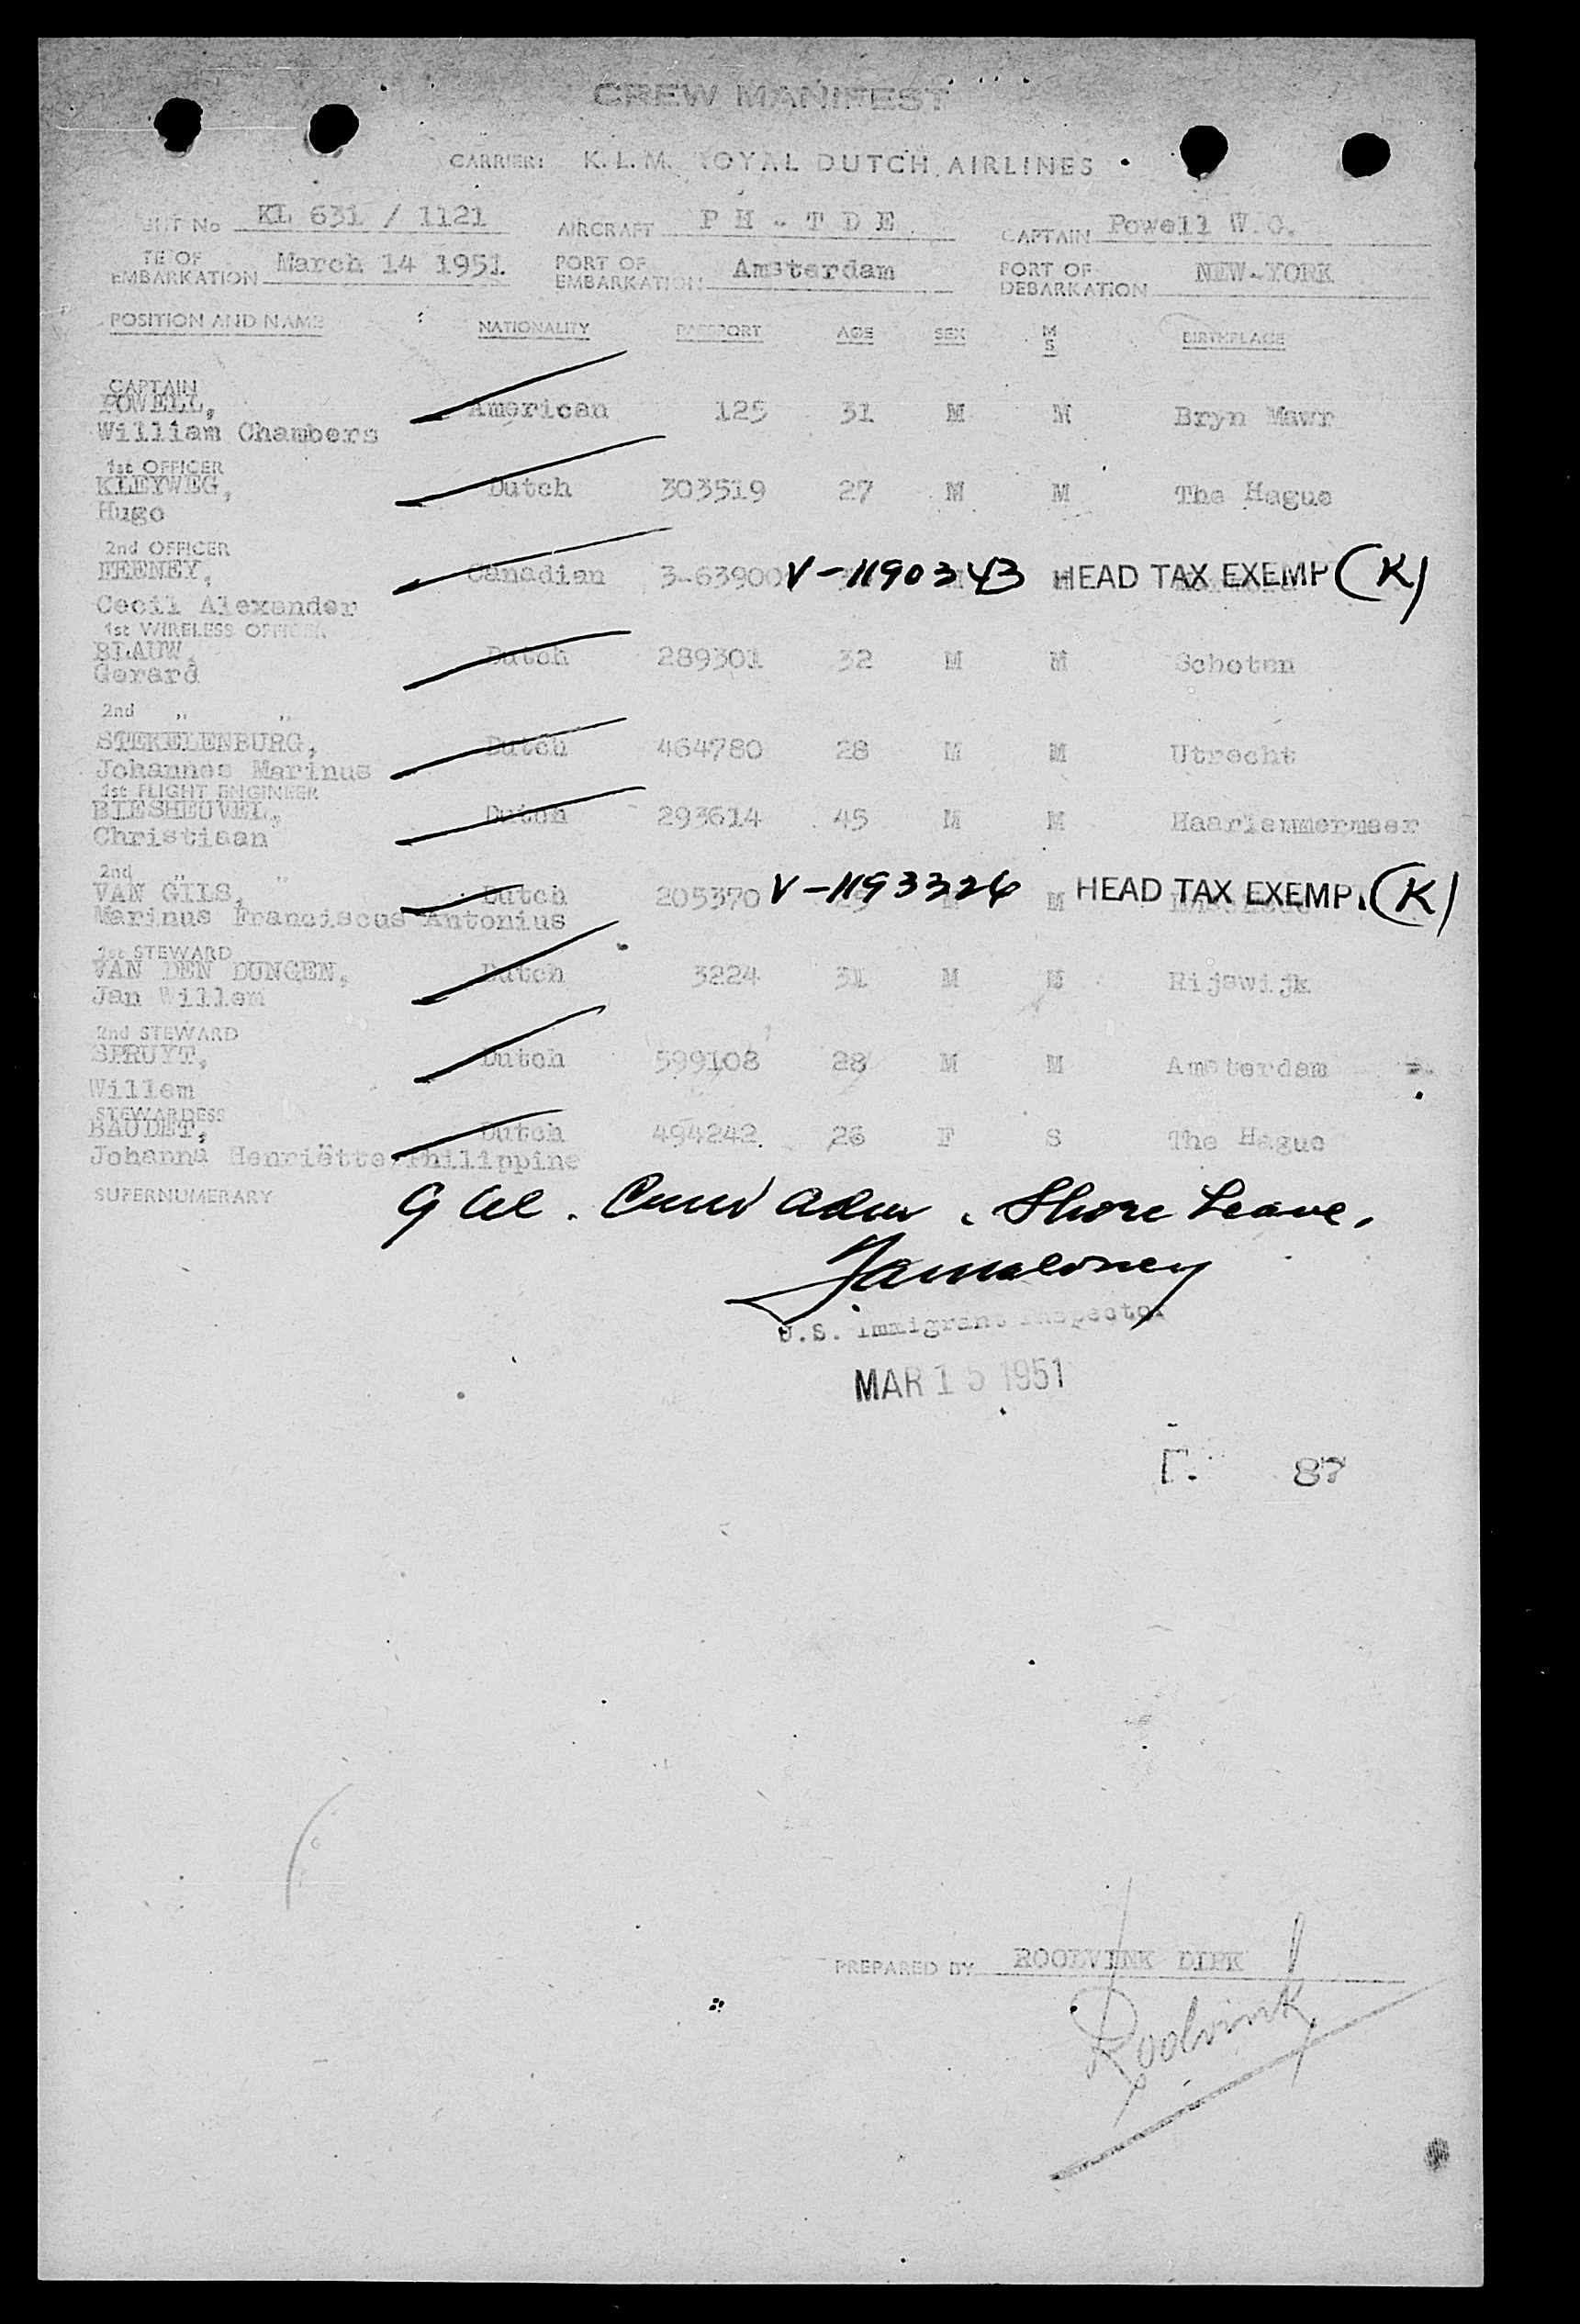 CREW MANIFEST
CARRIER: K. L. M. ROYAL DUTCH AIRLINES
No KL 631 / 1121 AIRCRAFT P H - T D E CAPTAIN Powell W.C.
TE OF EMBARKATION March 14 1951 PORT OF EMBARKATION Amsterdam PORT OF DEBARKATION NEW-YORK
POSITION AND NAME NATIONALITY PASSPORT AGE SEX M S BIRTHPLACE
CAPTAIN
POWELL, American 125 31 M M Bryn Mawr
William Chambers
1st OFFICER
KLEYWEG, Dutch 303519 27 M M The Hague
Hugo
2nd OFFICER
FEENEY, Canadian 3-63900 V-1190343 HEAD TAX EXEMP (K)
Cecil Alexander
1st WIRELESS OFFICER
BLAUW, Dutch 289301 32 M M Schoten
Gerard
2nd " "
STEKELENBURG, Dutch 464780 28 M M Utrecht
Johannes Marinus
1st FLIGHT ENGINEER
BIESHEUVEL, Dutch 293614 45 M M Haarlemmermeer
Christiaan
2nd " "
VAN GILS, Dutch 205370 V-1193326 M HEAD TAX EXEMP. (K)
Marinus Franciscus Antonius
1st STEWARD
VAN DEN DUNGEN, Dutch 3224 31 M M Rijswijk
Jan Willem
2nd STEWARD
SPRUYT, Dutch 599108 28 M M Amsterdam
Willem
STEWARDESS
BAUDET, Dutch 494242 26 F S The Hague
Johanna Henriëtte Philippine
SUPERNUMERARY
9 Shore Leave.
U.S. Immigrant Inspector
MAR 15 1951
87
PREPARED BY ROODVINK DIRK
Roodvink